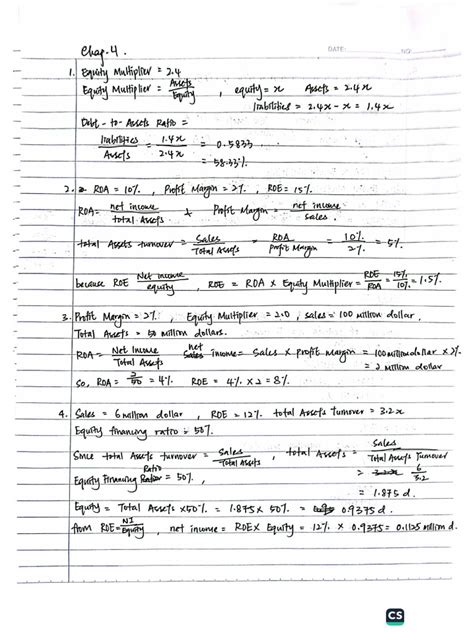 Chap. 4.
DATE:
NO.
1. Equity Multiplier = 2.4
Equity Multiplier = Assets / Equity , equity = x Assets = 2.4x
liabilities = 2.4x - x = 1.4x
Debt - to - Assets Ratio =
liabilities / Assets = 1.4x / 2.4x = 0.5833
= 58.33%
2. ROA = 10% , Profit Margin = 2% , ROE = 15%
ROA = net income / total Assets , Profit Margin = net income / sales.
total Assets turnover = Sales / Total Assets = ROA / Profit Margin = 10% / 2% = 5%
because ROE Net income / equity , ROE = ROA x Equity Multiplier = ROE / ROA = 15% / 10% = 1.5%
3. Profit Margin = 2% , Equity Multiplier = 2.0 , sales = 100 million dollar,
Total Assets = 50 million dollars.
ROA = Net Income / Total Assets net income = Sales x profit margin = 100 million dollar x 2%
= 2 million dollar
So, ROA = 2 / 50 = 4% ROE = 4% x 2 = 8%
4. Sales = 6 million dollar , ROE = 12% total Assets Turnover = 3.2x
Equity financing ratio = 50%
Since total Assets turnover = Sales / Total Assets , total Assets = Sales / Total Assets Turnover
Equity Financing Ratio = 50%, = 6 / 3.2
= 1.875 d.
Equity = Total Assets x 50% = 1.875 x 50% = 0.9375 d.
from ROE = NI / Equity , net income = ROE x Equity = 12% x 0.9375 = 0.1125 million d.
CS